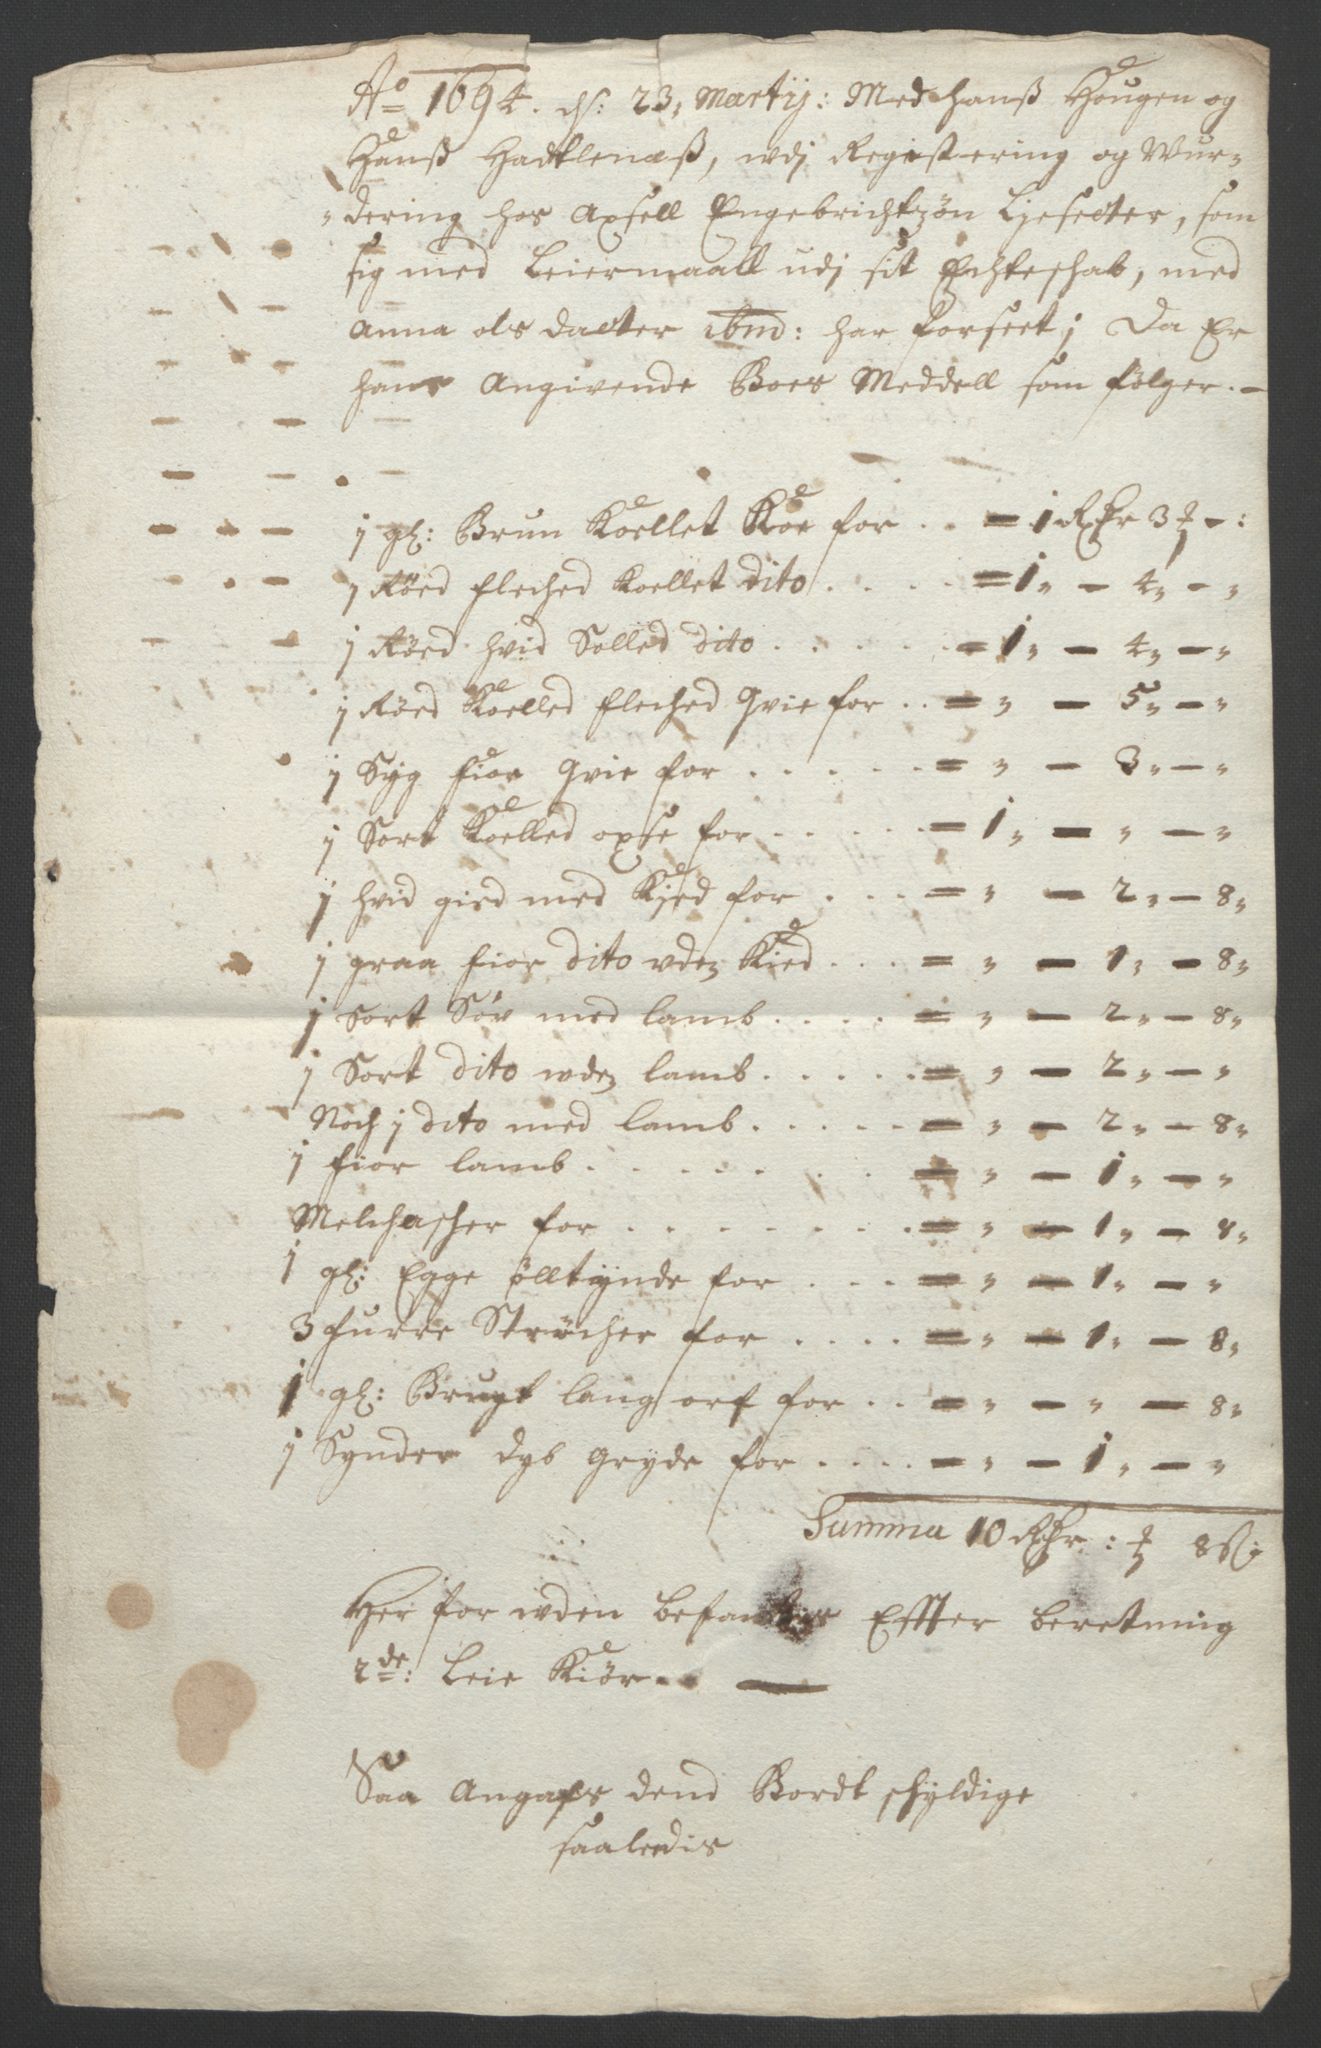 Ao 1694. ds: 23, Martij: Med hanß Hougen og
Hanß Hadtlenæß, wdj Registering og Wur-
dering hos Axsell Engebrichtzøn Ljesetter, som
sig med Leiermaall udj sit Echteschab, med
Anna ols dacter ibm: har forseet; Da Er
hans Angivende Boes Meddell som følger.-
1 gl: Brun Kollet Koe for .. = 1 Rdr 3 ƶ - :
1 Røed fleched Kollet dito .... = 1„ - 4„ - „
1 Røed hvid Solled dito ..... = 1„ - 4„ - „
1 Røed Kolled fleched Qvie for .. = „ - 5„ - „
1 Syg fior Qvie for ..... = „ - 3„ - „
1 Sort Kolled oxse for ..... = 1„ - „ - „
1 hvid gied med Kied for ... = „ - 2„ - 8„
1 graa fior dito uden Kied ... = „ - 1„ - 8„
1 Sort Søv med lamb .... = „ - 2„ - 8„
1 Sort dito wden lamb ..... = „ - 2„ - „
Noch 1 dito med lamb ..... = „ - 2„ - 8„
1 fior lamb ...... = „ - 1„ - „
Melchascher for ....... = „ - 1„ - 8„
1 gl: Egge ølltynde for ... = „ - 1„ - „
3 furre Strøcher for .... = „ - 1„ - 8„
1 gl: Brugt lang orf for .. = „ - „ - 8„
1 Synder dyb gryde for .... = „ - 1„ - „
Summa 10 Rdr : ƶ 8 ß:
Her for wden befantes Effter beretning
2de: Leie Kiør. -
Saa Angafs dend Bordt schyldige
saaledis